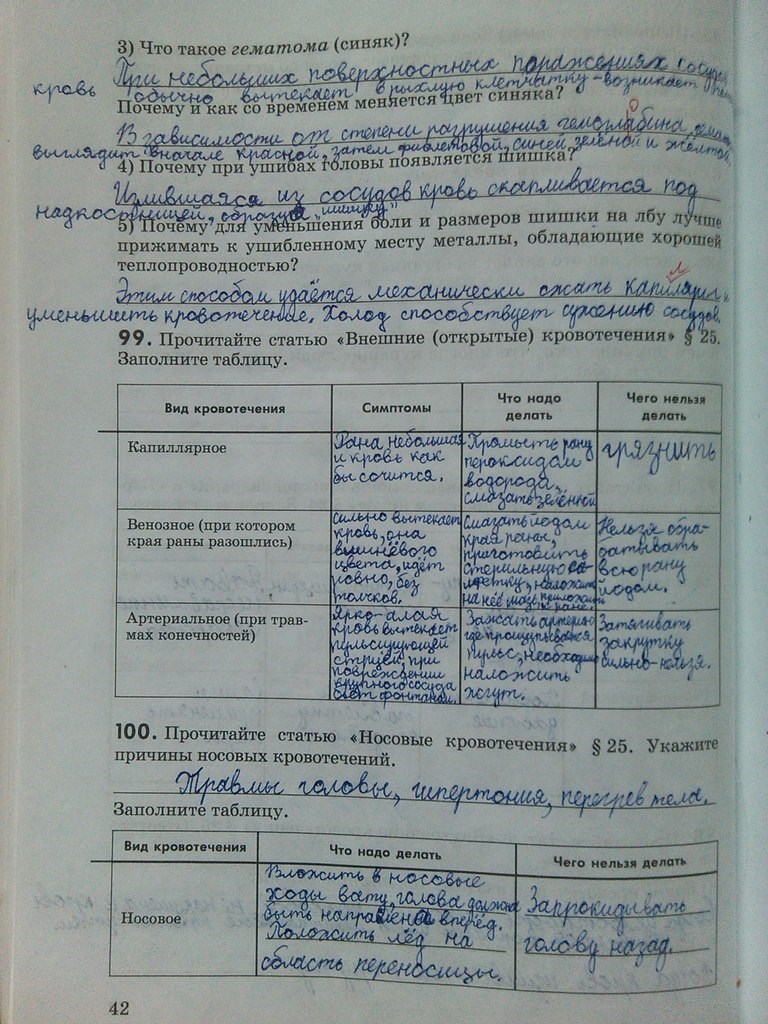 3) Что такое гематома (синяк)?
При небольших поверхностных поражениях сосудов
кровь обычно вытекает в рыхлую клетчатку - возникает
Почему и как со временем меняется цвет синяка?
В зависимости от степени разрушения гемоглабина
о
выглядит вначале красной, затем фиолетовой, синей, зеленой и желтой.
4) Почему при ушибах головы появляется шишка?
Излившаяся из сосудов кровь скапливается под
надкостницей, образуя „шишку”
5) Почему для уменьшения боли и размеров шишки на лбу лучше
прижимать к ушибленному месту металлы, обладающие хорошей
теплопроводностью?
Этим способом удаётся механически сжать капилляры и
уменьшить кровотечение. Холод способствует сужению сосудов.
99. Прочитайте статью «Внешние (открытые) кровотечения» § 25.
Заполните таблицу.
Вид кровотечения
Симптомы
Что надо
делать
Чего нельзя
делать
Капиллярное
Рана небольшая
и кровь как
бы сочится.
Промыть рану
пероксидом
водорода,
смазать зелёнкой
грязнить
Венозное (при котором
края раны разошлись)
сильно вытекает
кровь, она
вишнёвого
цвета, идёт
ровно, без
толчков.
Смазать йодом
края раны,
приготовить
стерильную са-
лфетку, наложить
на неё мазь, приложить
к ране.
Нельзя обра-
батывать
всю рану
йодом.
Артериальное (при трав-
мах конечностей)
Ярко-алая
кровь вытекает
пульсирующей
струёй, при
повреждении
крупного сосуда
бьёт фонтаном.
Зажать артерию
где прощупывается
пульс, необходимо
наложить
жгут.
Затягивать
закрутку
сильно-нельзя.
100. Прочитайте статью «Носовые кровотечения» § 25. Укажите
причины носовых кровотечений.
Травмы головы, гипертония, перегрев тела.
Заполните таблицу.
Вид кровотечения
Что надо делать
Чего нельзя делать
Носовое
Вложить в носовые
ходы вату, голова должна
быть направлена вперёд.
Положить лёд на
область переносицы.
Запрокидывать
голову назад.
42